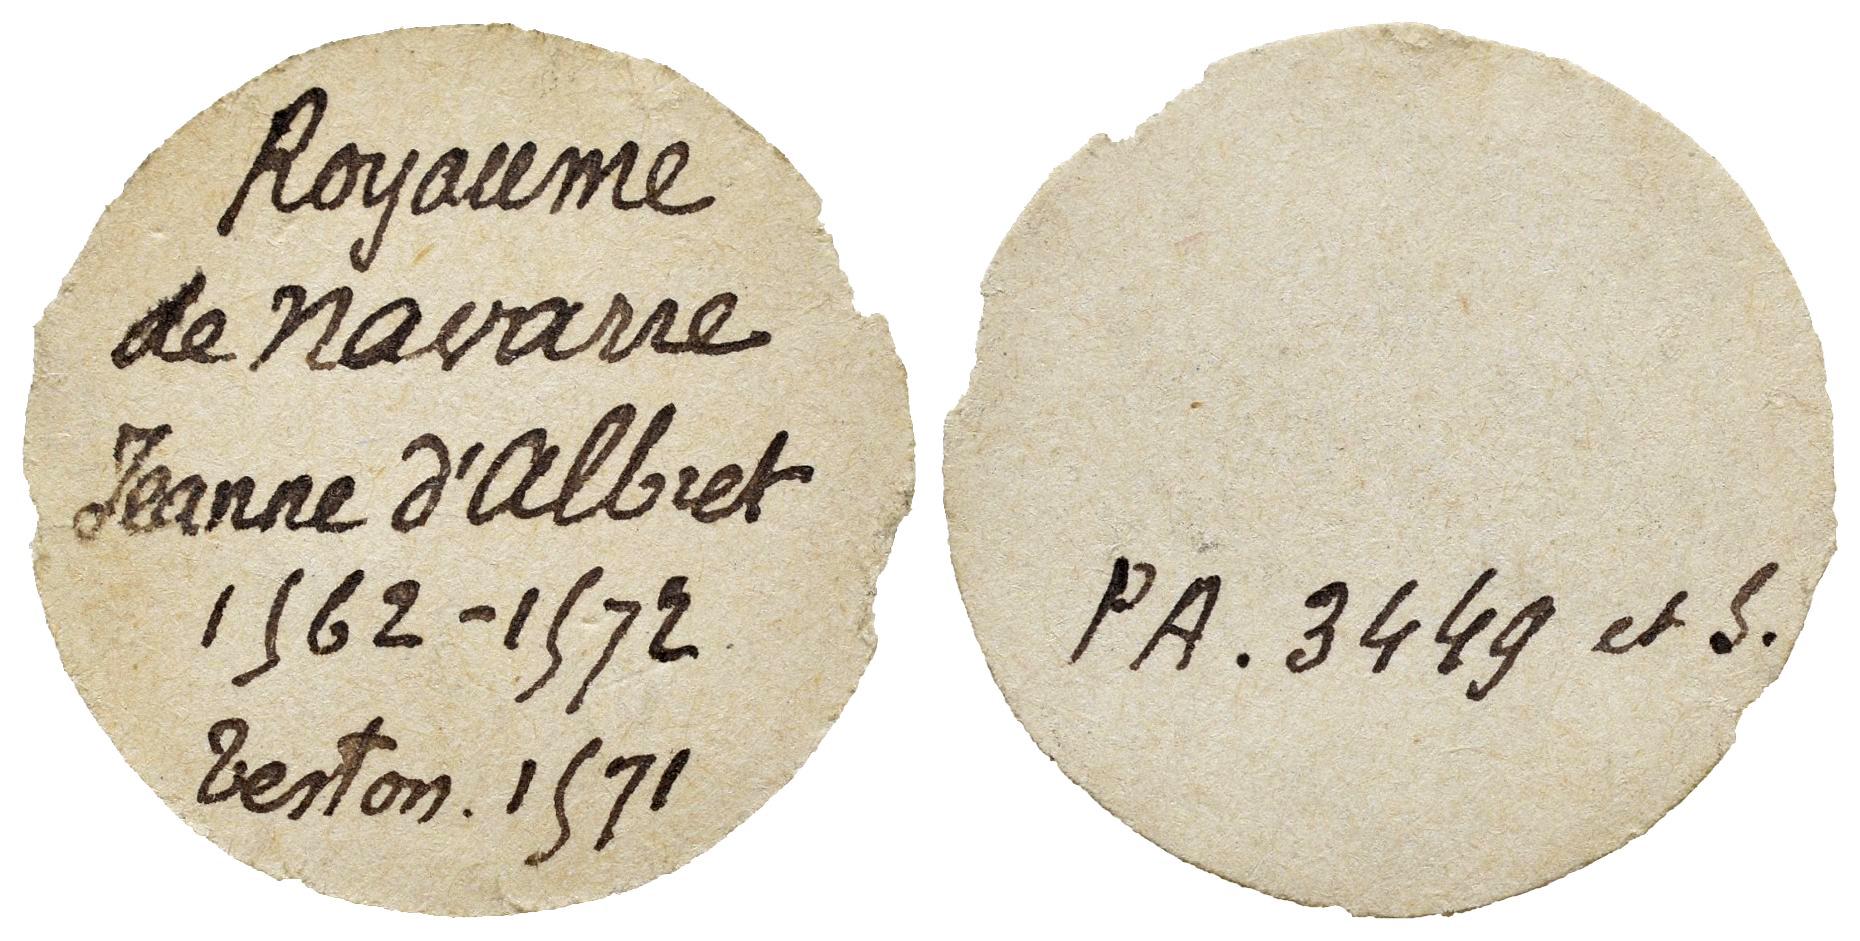 Royaume
de Navarre
Jeanne d'Albret
1562-1572.
Teston. 1571
PA. 3449 et S.